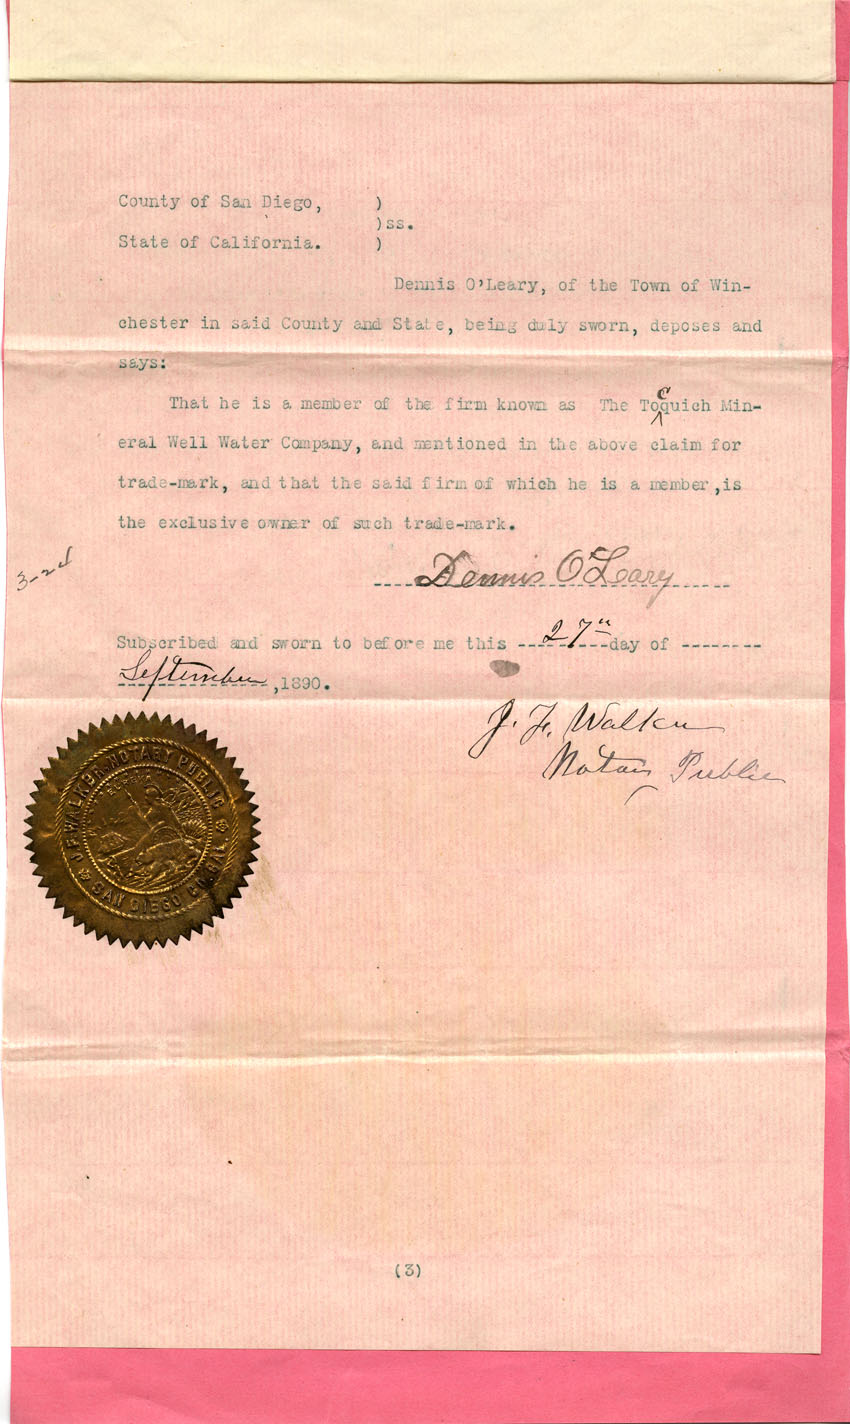 County of San Diego, )
)ss.
State of California. )
Dennis O'Leary, of the Town of Win-
chester in said County and State, being duly sworn, deposes and
says:
That he is a member of the firm known as The Tocquich Min-
eral Well Water Company, and mentioned in the above claim for
trade-mark, and that the said firm of which he is a member, is
the exclusive owner of such trade-mark.
3-24
Dennis O'Leary
Subscribed and sworn to before me this 27th day of
September, 1890.
J. F. Walker
Notary Public
J. F. WALKER, NOTARY PUBLIC
SAN DIEGO CO. CAL.
EUREKA
(3)